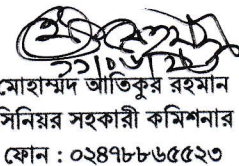 মোহাম্মদ আতিকুর রহমান
সিনিয়র সহকারী কমিশনার
ফোন : ০২৪৭৮৮৬৫৫২৩